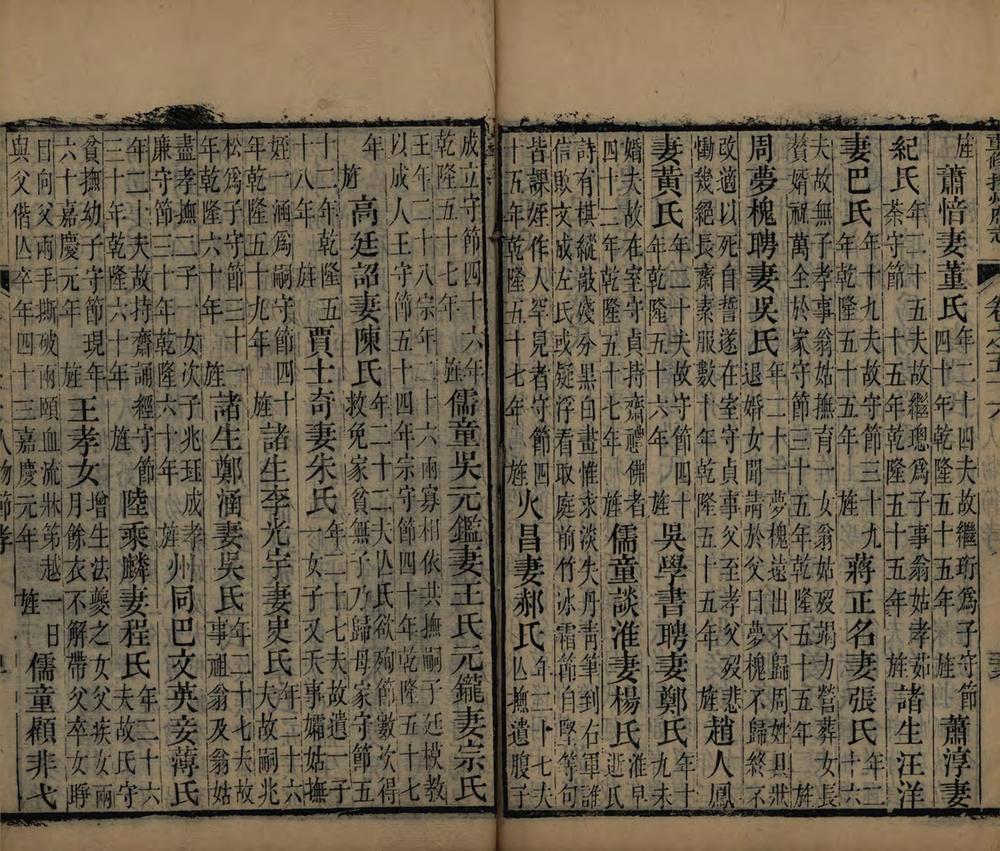 旌 蕭愔妻董氏年二十四夫故繼珩為子守節四十年乾隆五十五年 旌 蕭淳妻
紀氏年二十五夫故繼璁為子事翁姑孝茹荼守節 十五年乾隆五十五年 旌 諸生汪洋
妻巴氏年十九夫故守節三十九年乾隆五十五年 旌 蔣正名妻張氏年二十六
夫故無子孝事翁姑撫育一女翁姑歿竭力營葬女長贅婿祝萬全於家守節三十五年乾隆五十五年 旌
周夢槐聘妻吳氏年二十一夢槐遠出不歸周姓具狀退婚女聞請於父曰夢槐不歸終不
改適以死自誓遂在室守貞事父至孝父歿悲慟幾絕長齋素服數十年乾隆五十五年 旌 趙人鳳
妻黃氏年二十夫故守節四十年乾隆五十六年 旌 吳學書聘妻鄭氏年十九未
婚夫故在室守貞持齋禮佛者四十二年乾隆五十七年 旌 儒童談淮妻楊氏淮早逝氏
詩有棋縱敲殘分黑白畫惟求淡失丹青筆到右軍誰信敗文成左氏或疑浮看取庭前竹冰霜節自堅等句
皆課姪作人罕見者守節四十五年乾隆五十七年 旌 火昌妻郝氏年三十七夫亾撫遺腹子
成立守節四十六年乾隆五十七年 旌 儒童吳元鑑妻王氏元鑨妻宗氏
王年二十八宗年二十六兩寡相依共撫嗣子廷模教以成人王守節五十四年宗守節四十年乾隆五十七
年 旌 高廷詔妻陳氏年二十二夫亾氏欲殉節數次得救免家貧無子乃歸母家守節五
十二年乾隆五十八年 旌 賈士奇妻朱氏年二十七夫故遺一子一女子又夭事孀姑撫
姪一涵為嗣守節四十年乾隆五十九年 旌 諸生李光宇妻史氏年二十六夫故嗣兆
松為子守節三十一年乾隆六十年 旌 諸生鄭涵妻吳氏年二十七夫故事祖翁及翁姑
盡孝撫二子一女次子兆玨成孝廉守節三十年乾隆六十年 旌 州同巴文英妾薄氏
年二十夫故持齋誦經守節三十年乾隆六十年 旌 陸乘麟妻程氏年二十六夫故氏守
貧撫幼子守節現年六十嘉慶元年 旌 王孝女增生法夔之女父疾女兩月餘衣不解帶父卒女踭
日向父兩手撕破兩頤血流淋第越一日與父偕亾卒年四十三嘉慶元年 旌 儒童顧非弋